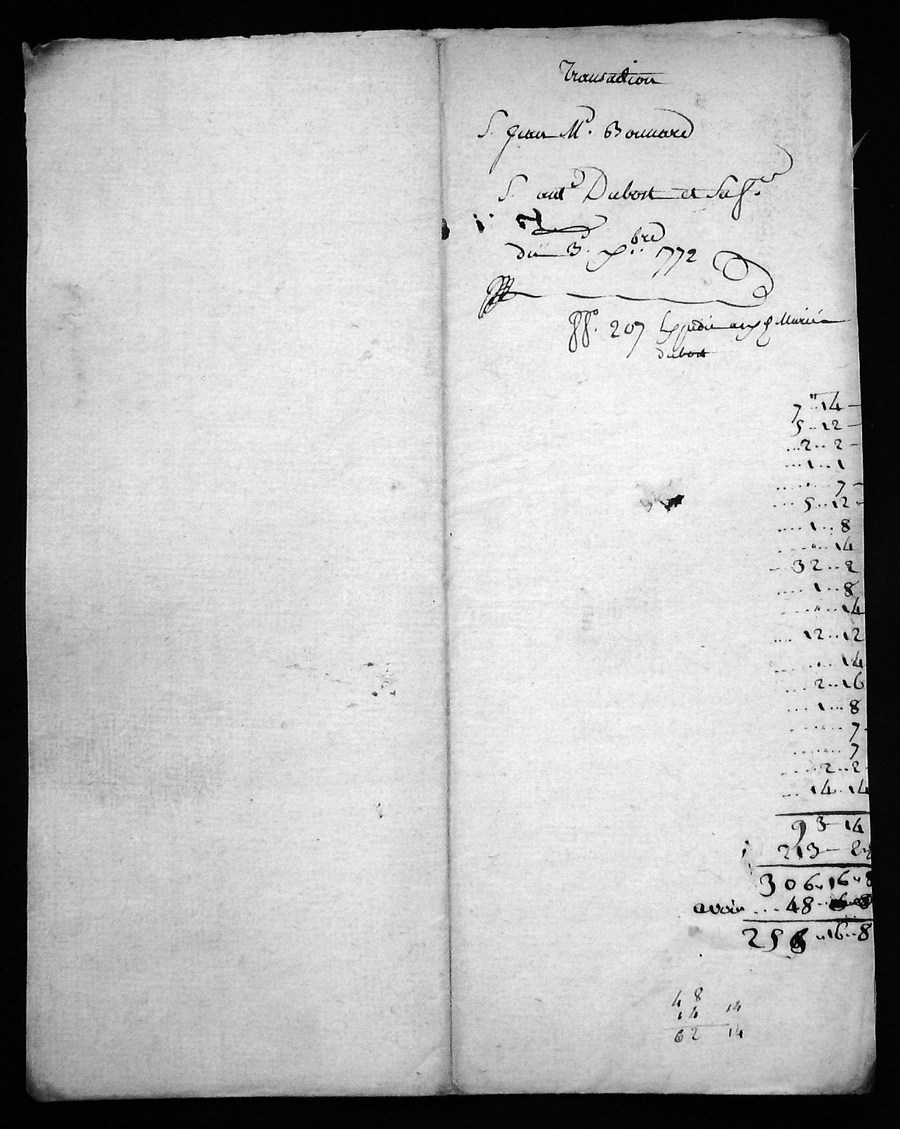 Transaction
S. Jean M.e Bonnard
S. ant.e Dubost et Sa f.e
du 3.e xbre 1772
207 Expedié au Marié
dubost
7 " 14
5 .. 12
2 .. 2
1 .. 1
7
5 .. 12
1 .. 8
14
32 .. 2
1 .. 8
" 14
12 .. 12
14
2 .. 16
1 .. 8
7
7
2 .. 2
14 .. 14
93 14
213 — 2
306 .. 16 .. 8
avoir .... 48
256 .. 16 .. 8
48
14 14
62 14